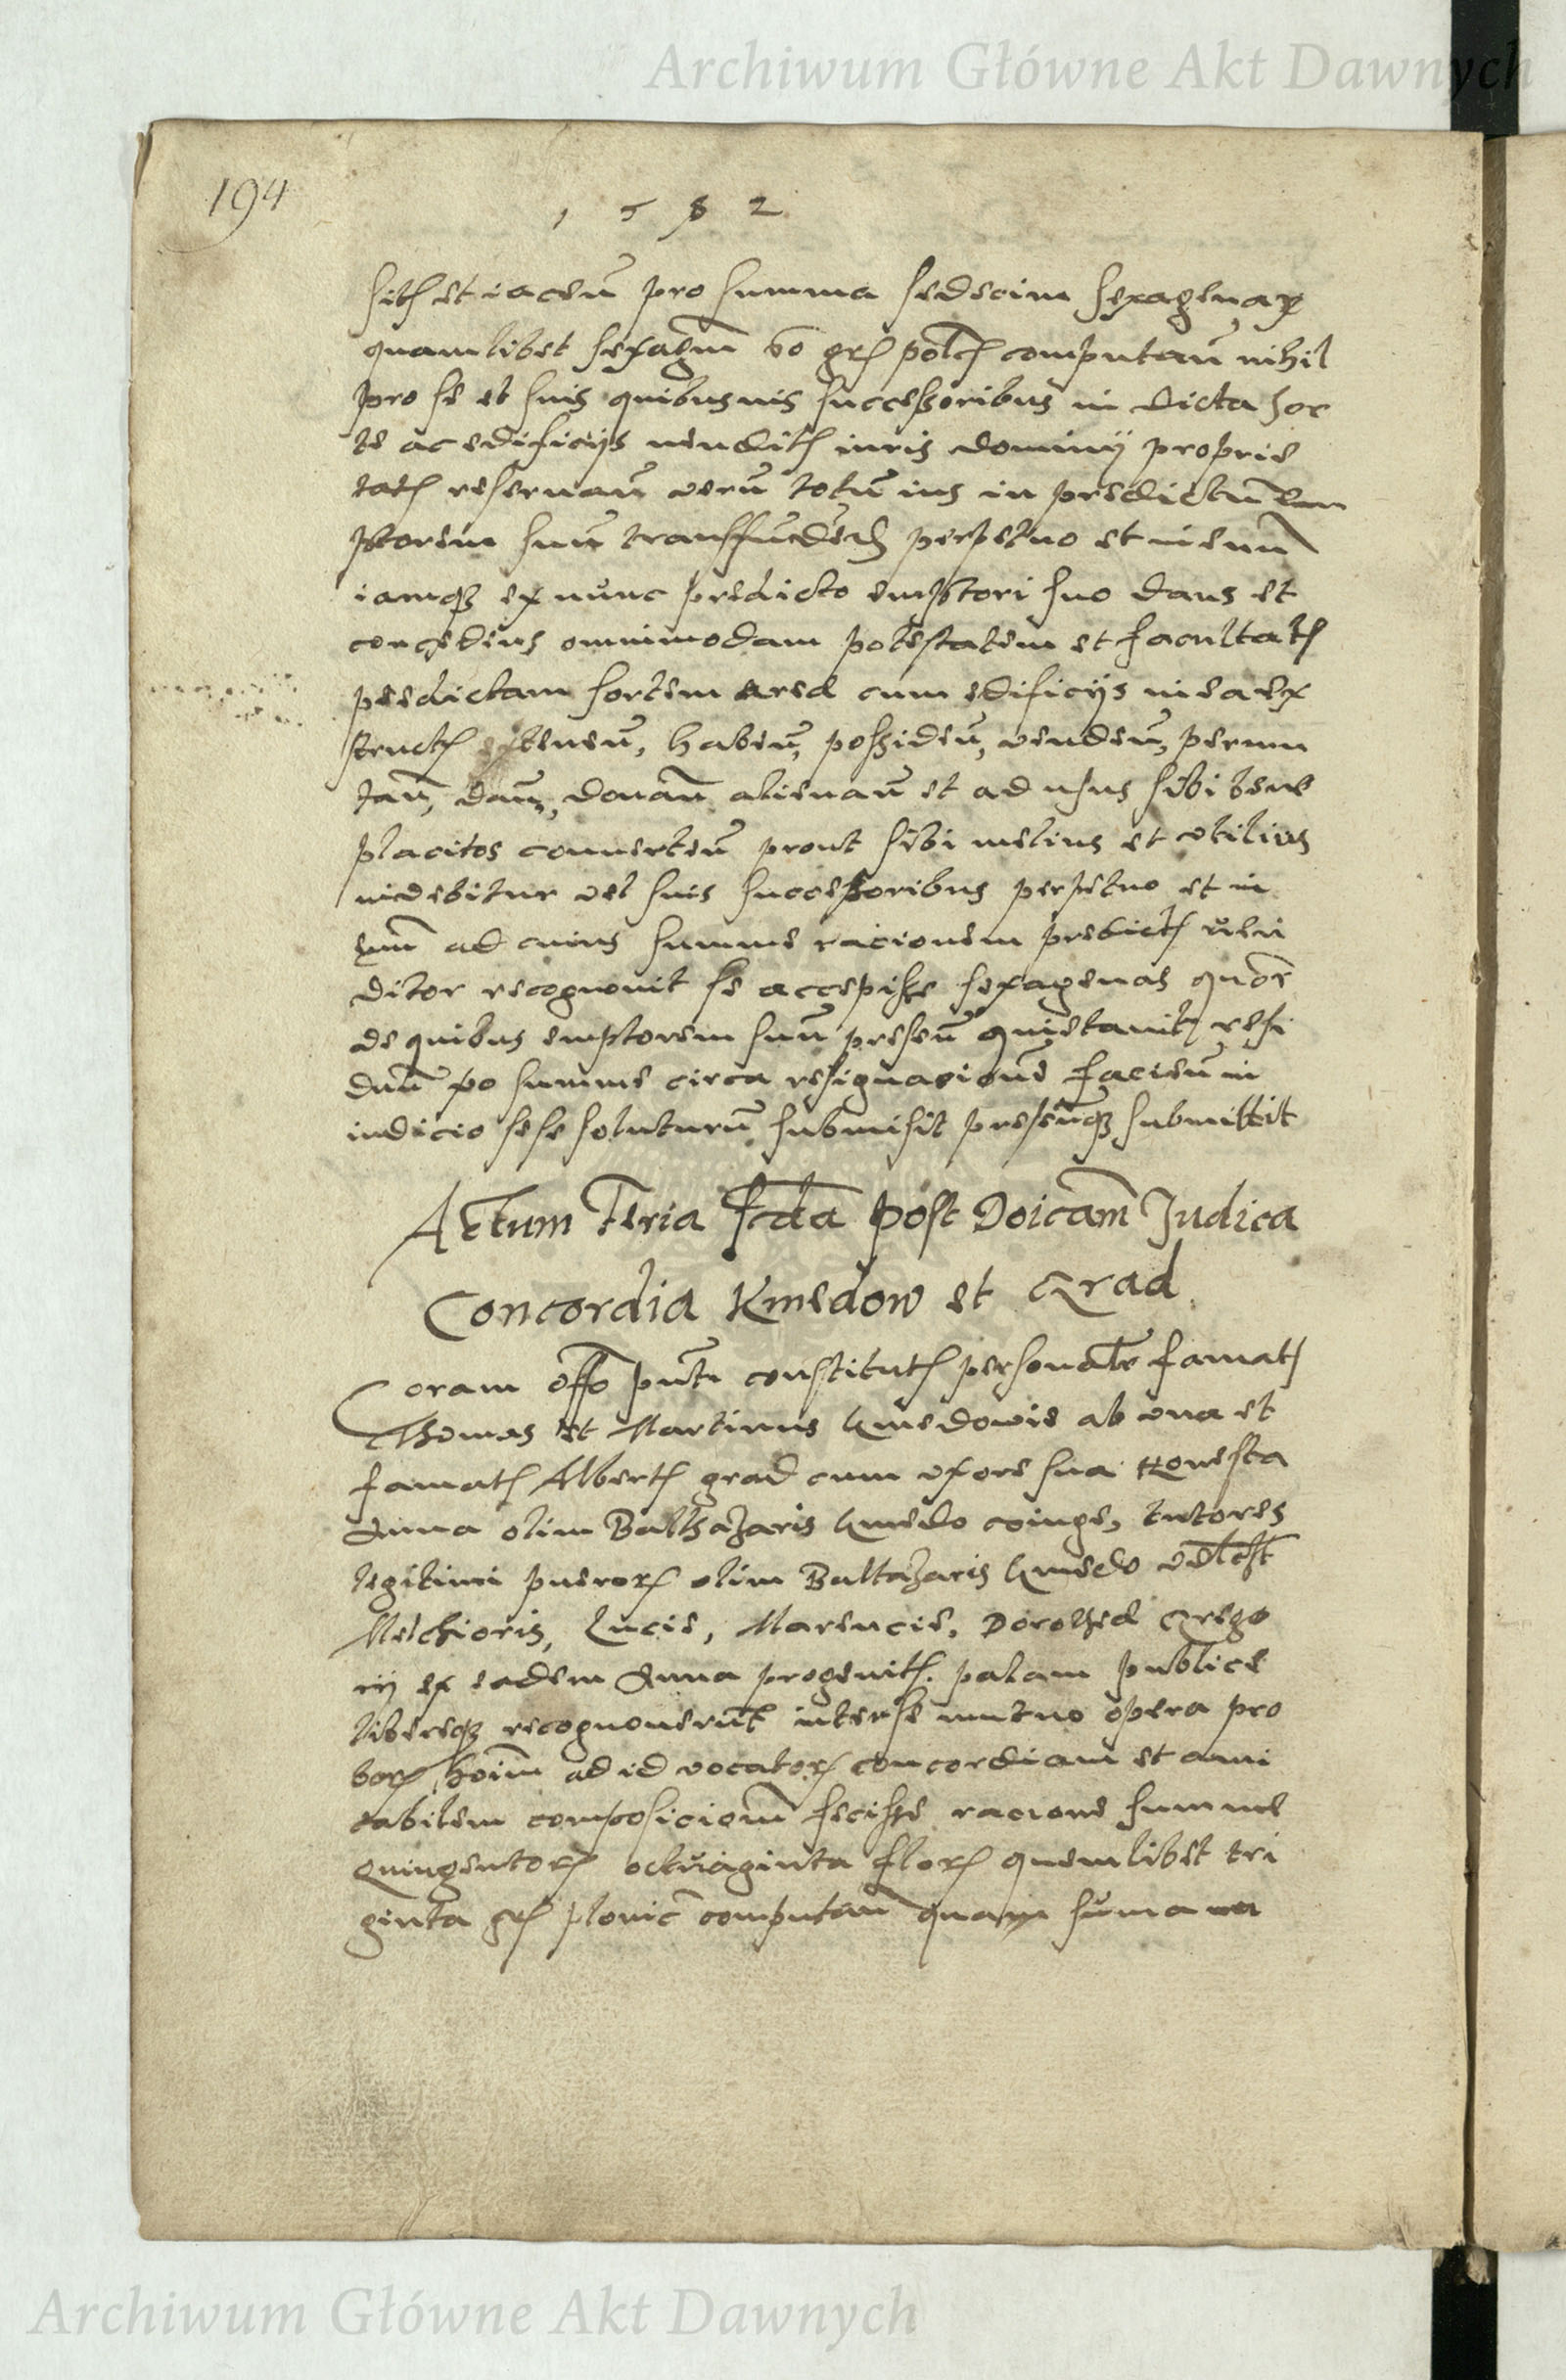 Archiwum Główne Akt Dawnych
194
1582
sit et iacen̄ pro summa sedecim sexagenar
quamlibet sexagen̄ gr polc computan̄ nihil
pro se et suis quibusuis successoribus in dicta sor
te ac edificijs uendit iuris dominij proprie
tat reseruan̄ verū totū ius in predictū em
ptorem suū transfūden̄ perpetuo et in euū
iamq ex nūnc predicto emptori suo dans et
concedens omnimodam potestatem et facultat
predictam sortem area cum edificijs in ea ex
struct tenen̄, haben̄, possiden̄, venden̄, permu
tan̄, dan̄, donan̄ alienan̄ et ad usus sibi bene
placitos conuerten̄ prout sibi melius et vtilius
uidebitur vel suis successoribus perpetuo et in
euū ad cuius summe racionem predict ven
ditor recognouit se accepisse sexagenas quor
de quibus emptorem suū presen̄ quietauit, resi
duū summe circa resignacionē facien̄ in
iudicio sese soluturū submisit presenq submittit
Actum Feria scda post Doicam̄ Judica
Concordia Kmedow et Grad
Coram offo pūti constitut personalr famat
Thomas et Martinus Kmedowie ab vna et
famat Albert grad cum vxore sua Honesta
Anna olim Balthazaris Kmedo coniuge, tutores
legitimi pueror olim Baltazaris Kmedo
Melchioris, Lucie, Marencie, Dorothea Grego
rij ex eadem Anna progenit. palam publice
libereq recognouerūt inter se mutuo opera pro
bor hoim̄ ad id vocator concordiam et ami
cabilem composicionē fecisse racione summe
quingentor octuaginta flor quemlibet tri
ginta gr plonic̄ computan̄ quam summam
Archiwum Główne Akt Dawnych